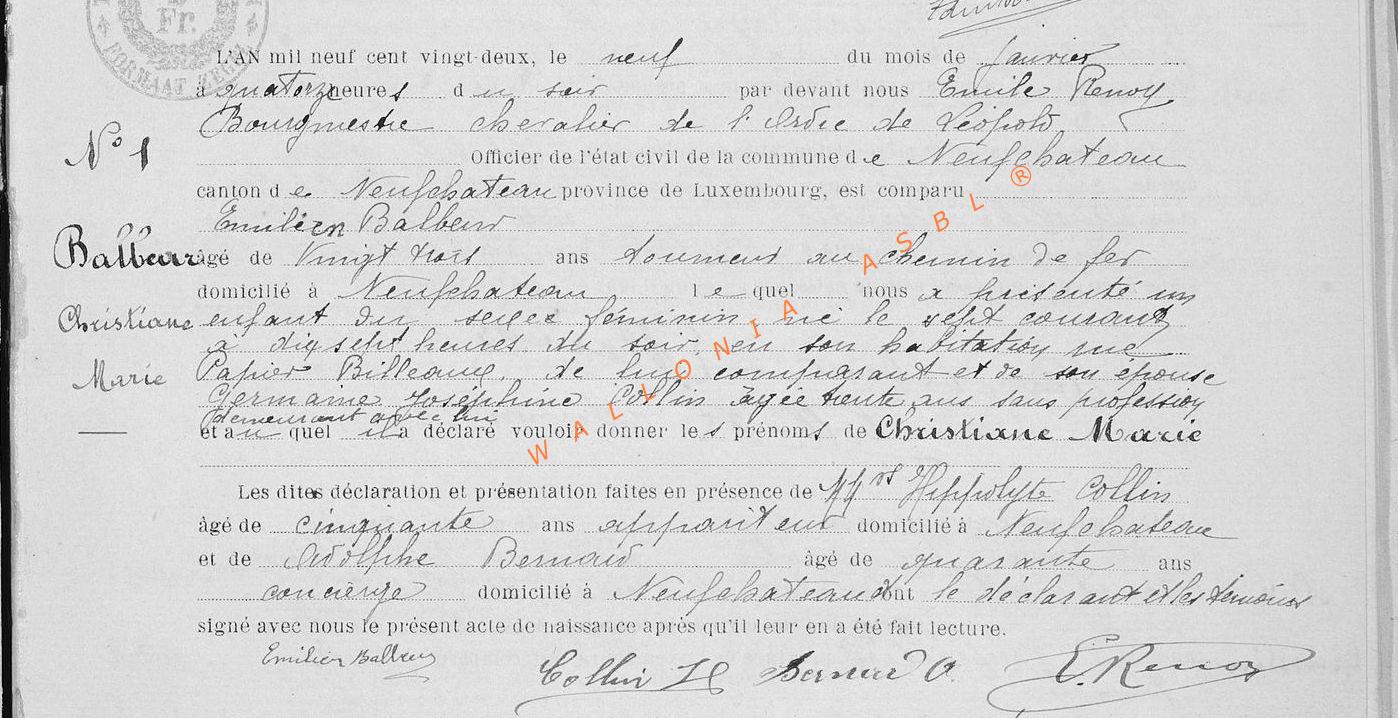 Fr.
FORMAAT ZEGEL
L'AN mil neuf cent vingt-deux, le neuf du mois de janvier
à quatorze heures du soir par devant nous Emile Renoy
Bourgmestre chevalier de l'Ordre de Léopold
N° 1
Officier de l'état civil de la commune de Neufchateau
canton de Neufchateau province de Luxembourg, est comparu
Emilien Balbeur
Balbeur
âgé de Vingt trois ans tourneur au chemin de fer
domicilié à Neufchateau lequel nous a présenté un
Christiane
enfant du sexe féminin né le sept courant
à dix sept heures du soir, en son habitation rue
Marie
Papier Billeaux, de lui comparant et de son epouse
Germaine Joséphine Collin âgée trente ans sans profession
demeurant avec lui
et auquel il a déclaré vouloir donner les prénoms de Christiane Marie
Les dites déclaration et présentation faites en présence de MMrs Hippolyte Collin
âgé de cinquante ans appariteur domicilié à Neufchateau
et de Adolphe Bernard âgé de quarante ans
concierge domicilié à Neufchateau dont le déclarant et les témoins
signé avec nous le présent acte de naissance après qu'il leur en a été fait lecture.
Emilien Balbeur
Collin H Bernard A. E. Renoy
WALLONIA ASBL ®